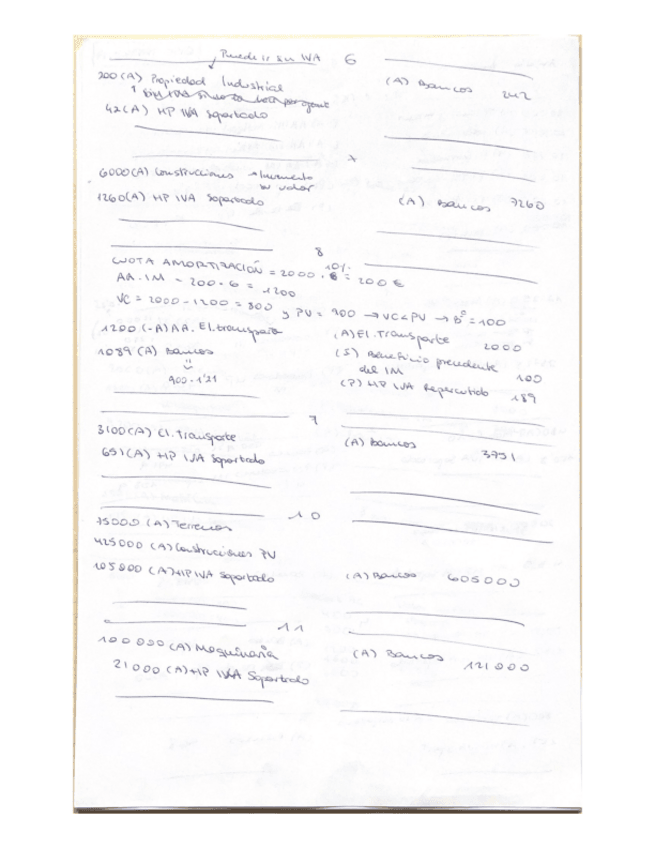 Puede ir sin IVA 6
200 (A) Propiedad Industrial (A) Bancos 242
42 (A) HP IVA Soportado
7
6000 (A) Construcciones → Incremento
su valor
1260 (A) HP IVA Soportado (A) Bancos 7260
8
CUOTA AMORTIZACIÓN = 2000 · 10% = 200 €
AA. IM = 200 · 6 = 1200
VC = 2000 - 1200 = 800 y PV = 900 → VC < PV → Bº = 100
1200 (-A) AA. El. transporte (A) El. Transporte 2000
1089 (A) Bancos (I) Beneficio procedente
del IM 100
900 · 1'21 (P) HP IVA Repercutido 189
9
3100 (A) El. Transporte (A) Bancos 3751
651 (A) HP IVA Soportado
10
75000 (A) Terrenos
425000 (A) Construcciones
105000 (A) HP IVA Soportado (A) Bancos 605000
11
100000 (A) Maquinaria (A) Bancos 121000
21000 (A) HP IVA Soportado